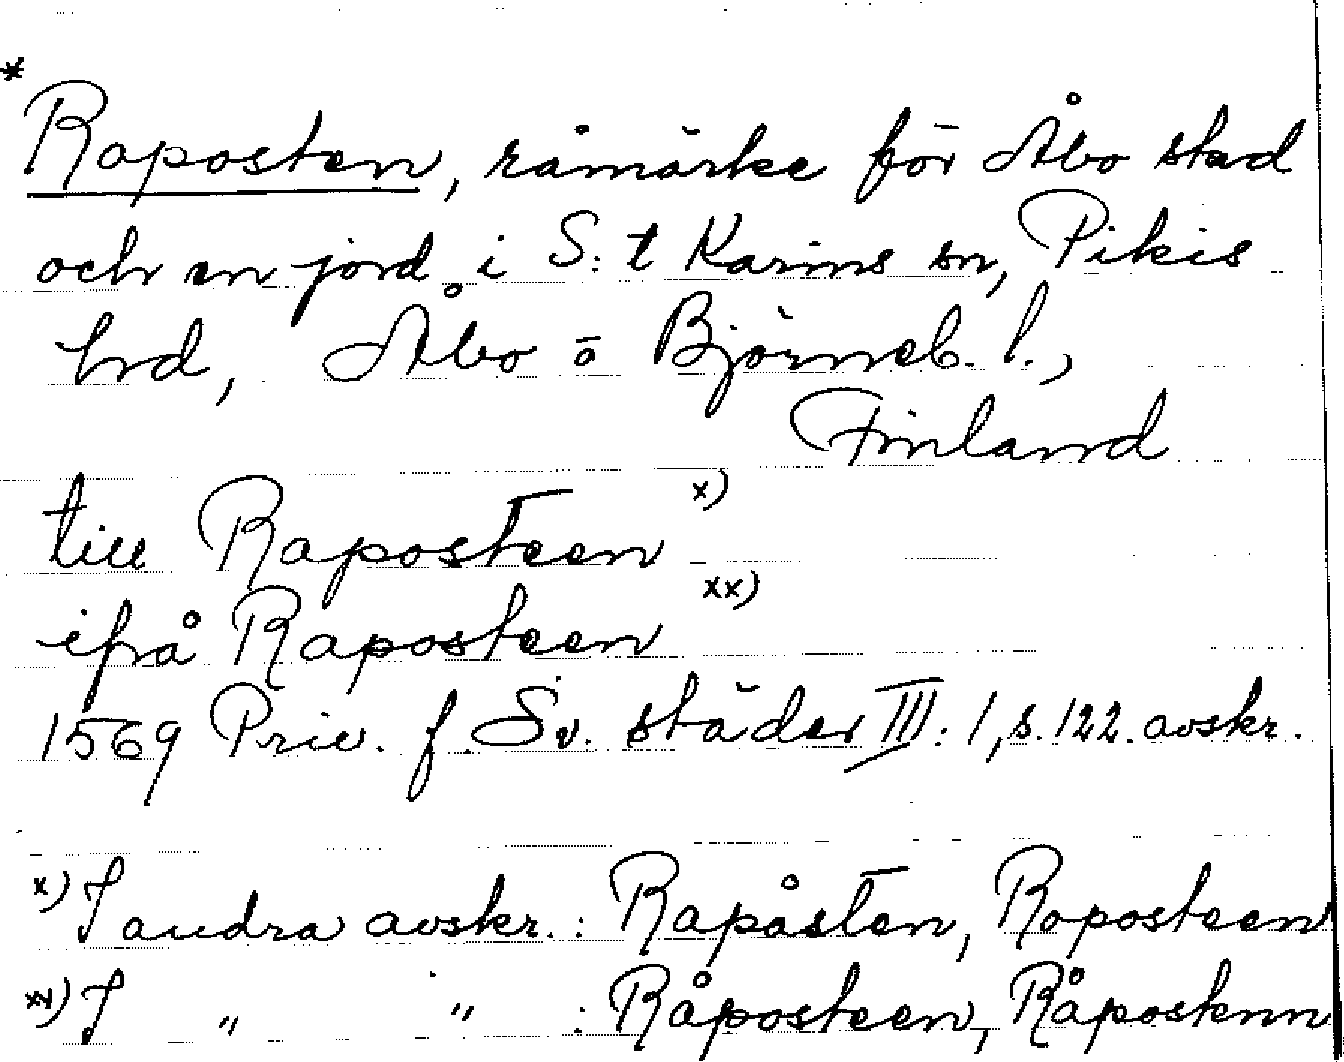 *
Raposten, råmärke för Åbo stad
och en jord i S:t Karins sn, Pikis
hrd, Åbo o Björneb. l.,
Finland
till Raposteen x)
ifrå Raposteen xx)
1569 Priv. f. Sv. städer III: 1, s. 122. avskr.
x) I andra avskr.: Rapåsten, Roposteen
xx) I " " : Råposteen, Råpostenn